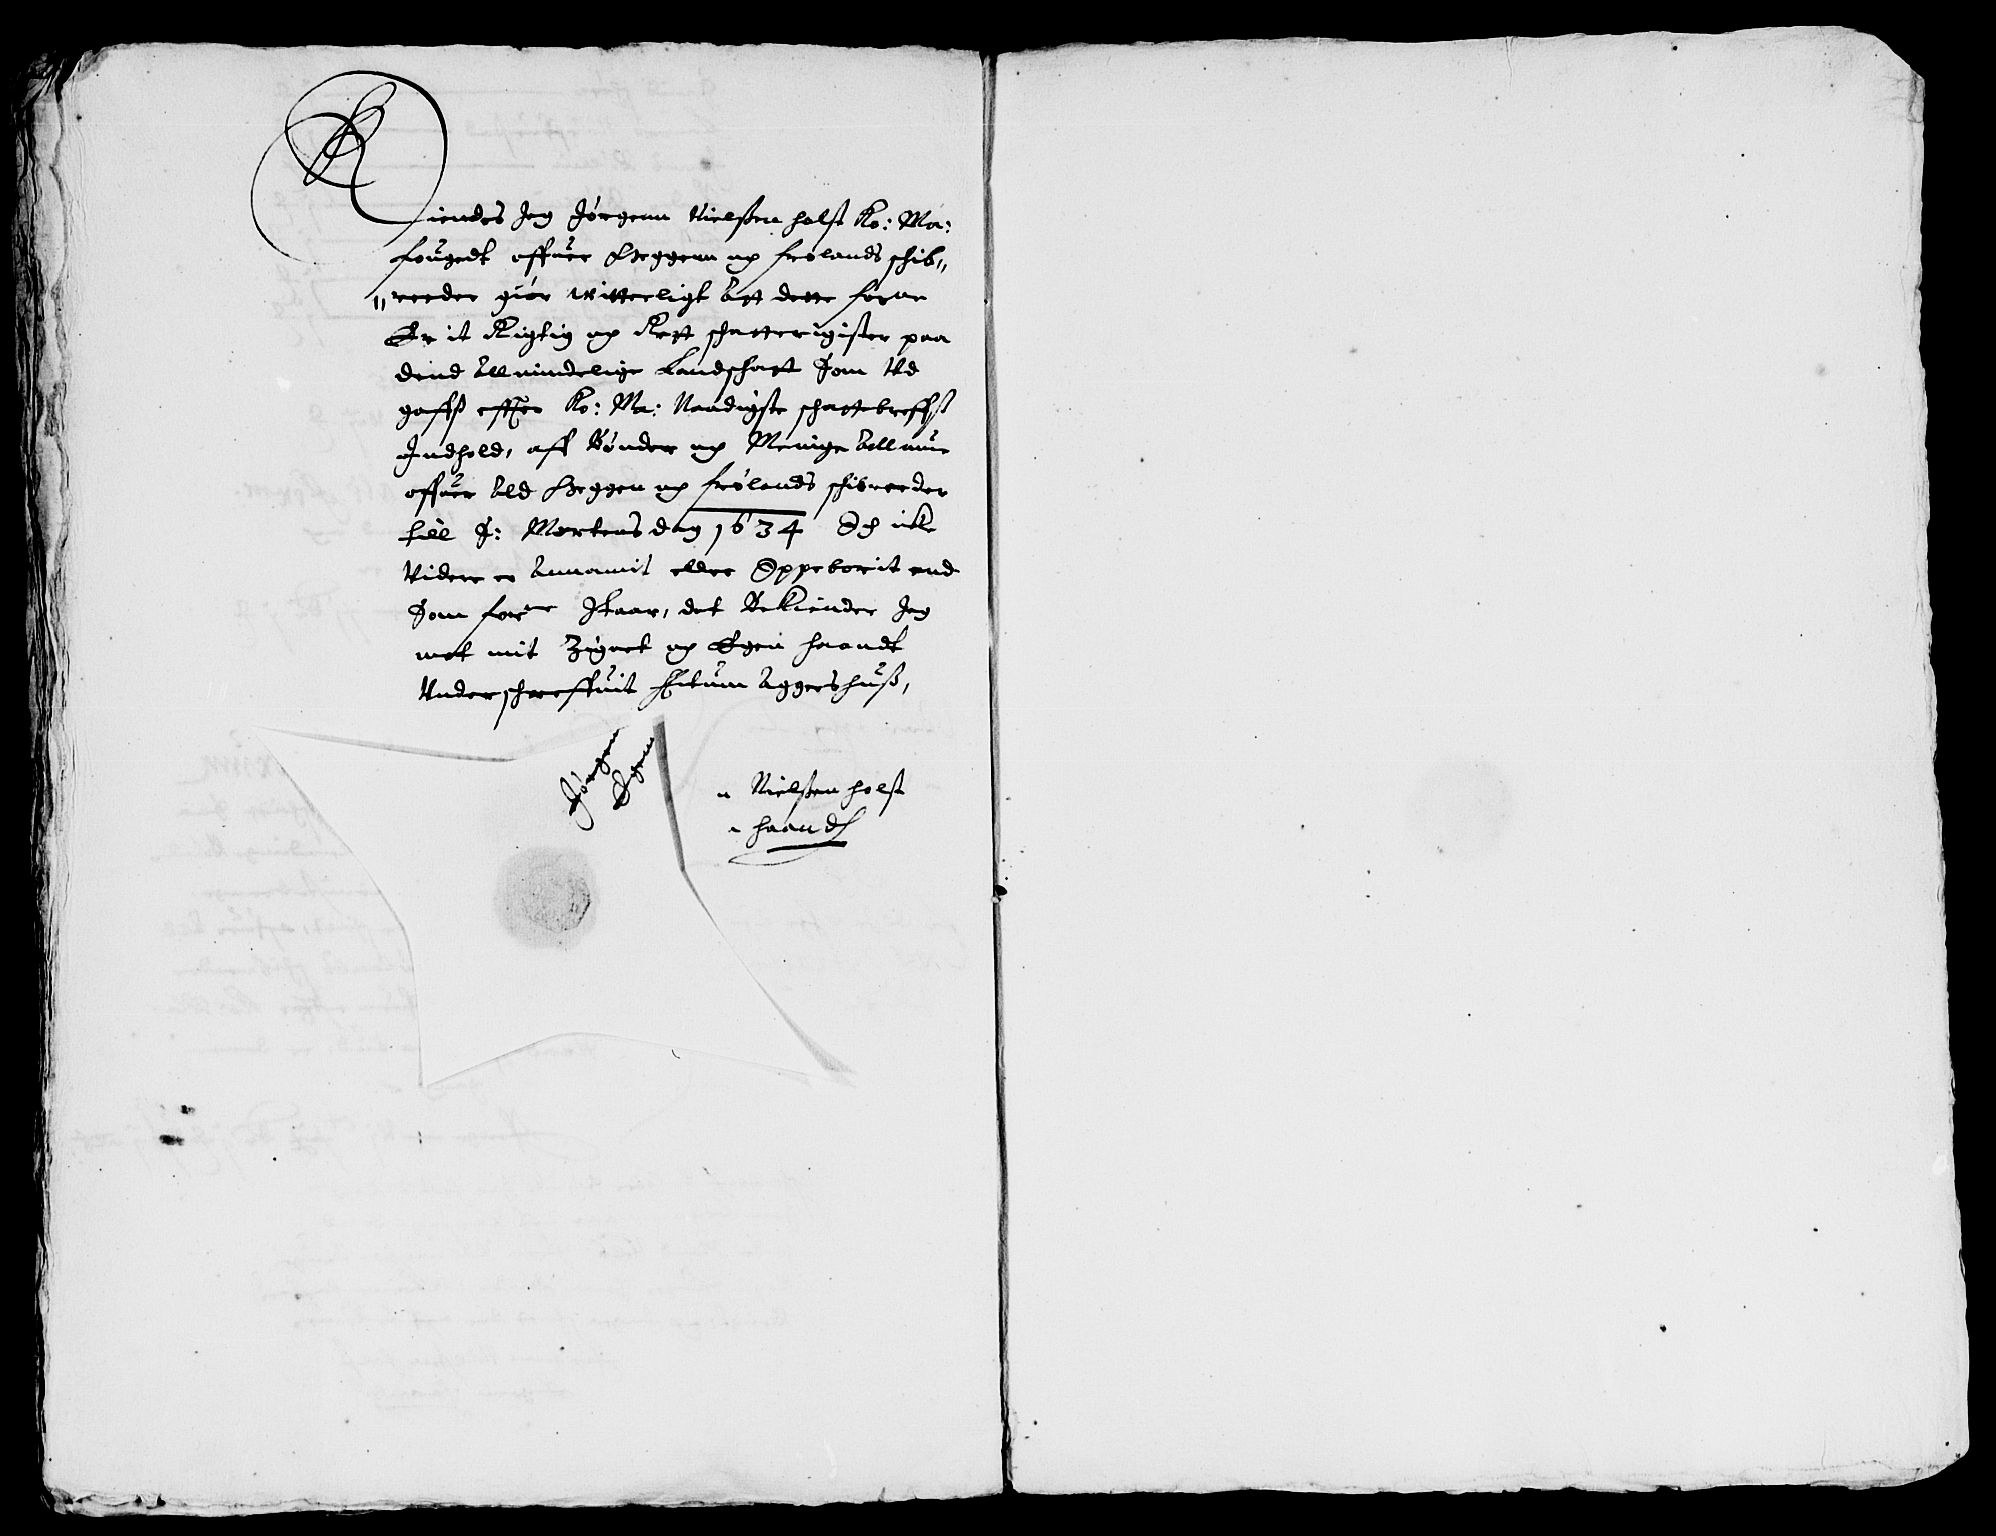 Kiendes Jeg Jørgenn Nielßen holst Ko: Ma:
fougedt offuer Heggenn og frølands schib„
„reeder giør witterligt Att dette forne
Er it Rigtig og Rett schatteregister paa
dend Allmindelige Landschatt Som Ud
gaffs effter Ko: Ma: Naadigste schattebreffs
Indhold, aff Bønder og Menige Allmue
offuer Ald Heggen og frølands schibreeder
till S: Mortens dag 1634 Och icke
Videre er Annamit eller Oppeborit end
Som forne staar, det Bekiender Jeg
met mit Zignet og Egen haandt
Underschreffuit Actum Aggershuß,
Jørgen Nielßen holst
Egen haandt